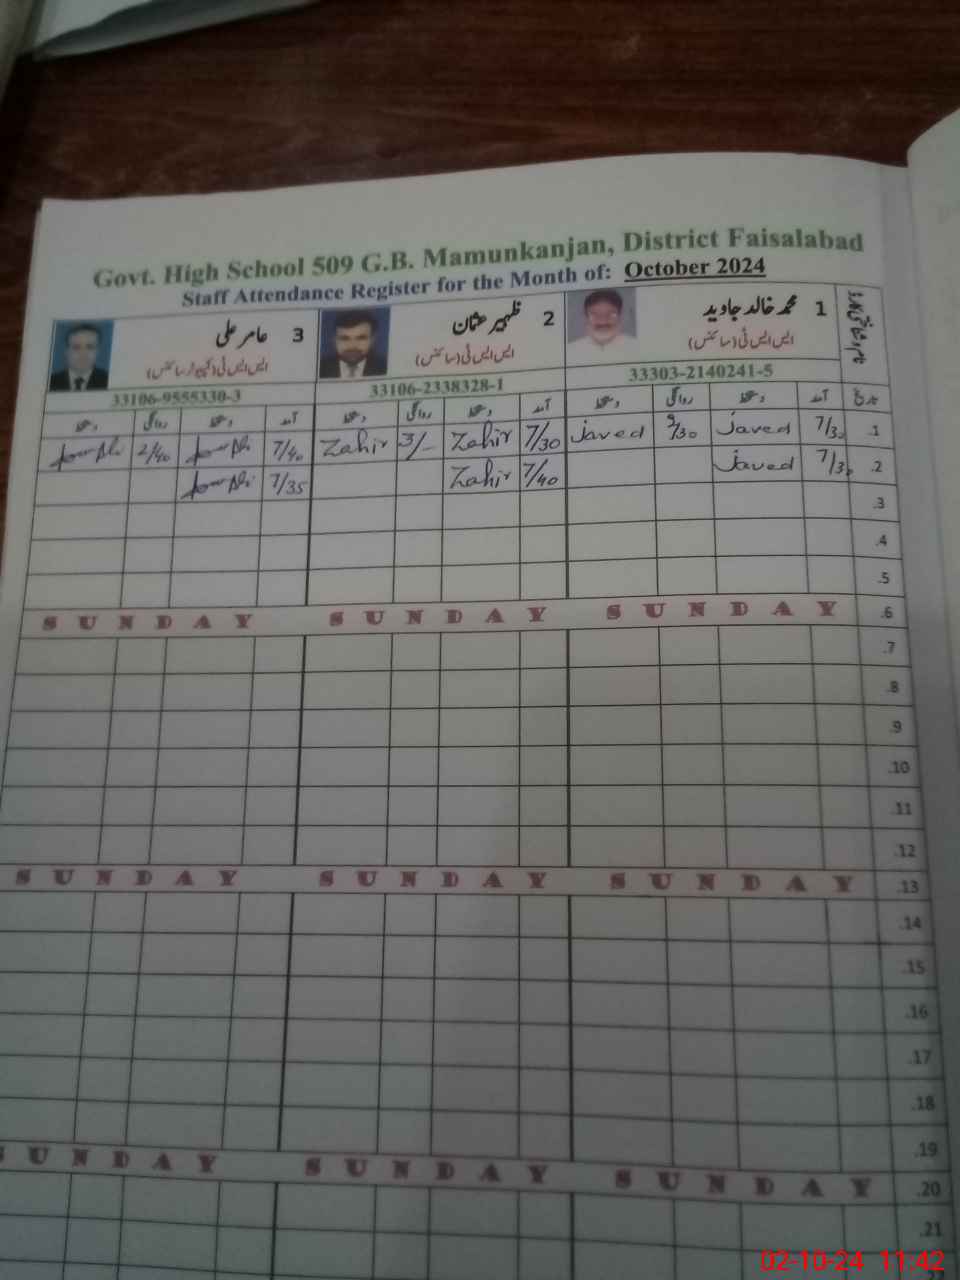 Govt. High School 509 G.B. Mamunkanjan, District Faisalabad
Staff Attendance Register for the Month of: October 2024
1 محمد خالد جاوید
ایس ایس ٹی (سائنس)
33303-2140241-5
2 ظہیر عثمان
ایس ایس ٹی (سائنس)
33106-2338328-1
3 عامر علی
ایس ایس ٹی (کمپیوٹر سائنس)
33106-9555330-3
نام و شناختی کارڈ
تاریخ آمد دستخط روانگی دستخط آمد دستخط روانگی دستخط آمد دستخط روانگی دستخط
.1 7/30 Javed Javed 7/30 Zahir 3/- Zahir 7/40 2/40
.2 7/30 Javed 7/40 Zahir 7/35
.3
.4
.5
SUNDAY SUNDAY SUNDAY .6
.7
.8
.9
.10
.11
.12
SUNDAY SUNDAY SUNDAY .13
.14
.15
.16
.17
.18
.19
SUNDAY SUNDAY SUNDAY .20
.21
02-10-24 11:42